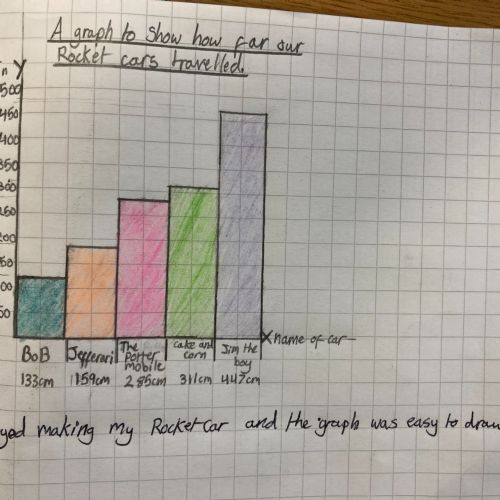 A graph to show how far our
Rocket cars travelled.
n Y
500
450
400
350
300
250
200
150
100
50
X name of car
BoB Jefferari The Porter mobile cake and corn Jim the boy
133cm 159cm 285cm 311cm 447cm
yed making my Rocket car and the graph was easy to draw